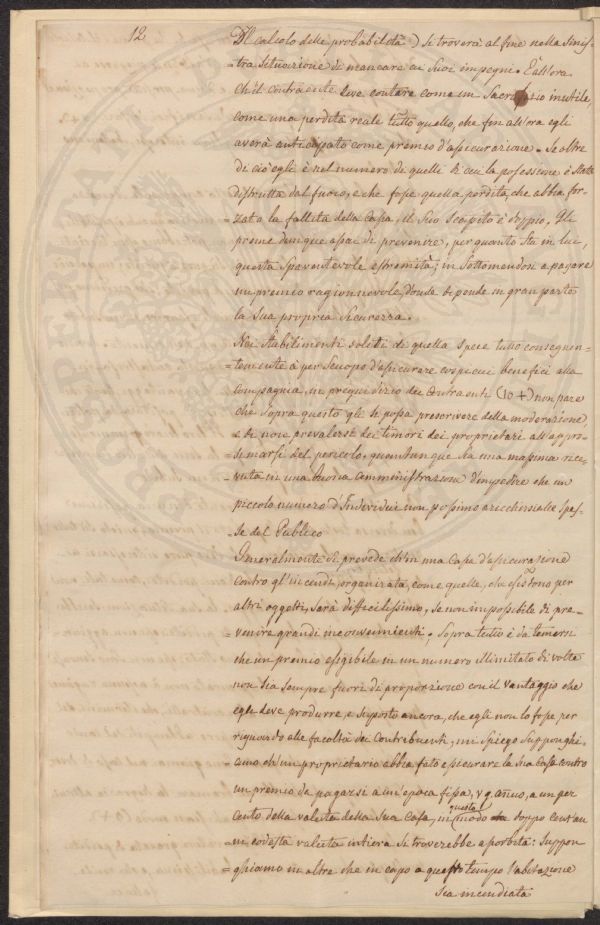 12
Il calcolo delle probabilità) si troverà al fine nella sinis=
=tra situazione di mancare ai suoi impegni. E all'ora
Ch'il contraente deve contare come un Sacrifizio inutile,
come una perdita reale tutto quello, che fin all'ora egli
averà anticipato come premio d'assicurazione. Se oltre
di ciò egli è nel numero di quelli di cui la possessione è stata
distrutta dal fuoco, e che fosse quella perdita, che abbia for=
=zata la fallita della Casa, il suo scapito è doppio, Gli
preme dunque assai di prevenire, per quanto sta in lui,
questa spaventevole estremità, in sottomendosi a pagare
un premio ragionnevole, d'onde dipende in gran parte
la sua propria sicurezza.
Nei stabilimenti soliti di questa spece tutto conseguen=
=temente à per scuopo d'assicurare cospicui benefici alla
Compagnia, in pregiudizio dei Contraenti (10+) non pare
che sopra questo gli si possa prescrivere della moderazione
e di non prevalersi dei timori dei proprietari all'appros=
=simarsi del pericolo; quantunque sia una massima rice=
=vuta in una buona amministrazione d'impedire che un
piccolo numero d'Individui non possino aricchirsi alle spe=
=se del Publico
Generalmente si prevede ch'in una Casa d'assicurazione
contro gl'incendi, organizata, come quelle, che esistono per
altri oggetti, sarà difficilissimo, se non impossibile di pre=
=venire grandi inconvenienti. Sopra tutto è da temersi
che un premio essigibile in un numero illimitato di volte
non sia sempre fuori di proporzione con il vantaggio che
egli deve produrre, e suposto ancora, che egli non lo fosse, per
riguardo alle facoltà dei Contribuenti, mi spiego Supponghi=
=amo ch'un proprietario abbia fato assicurare la sua Casa contro
un premio da pagarsi a un'epoca fissa, v.g. annuo, a un per
Cento della valuta della sua Casa, in questo modo doppo cent'an
ni codesta valuta intiera si troverebbe assorbita: suppon=
=ghiamo in oltre che in capo a questo tempo l'abitazione
sia incendiata